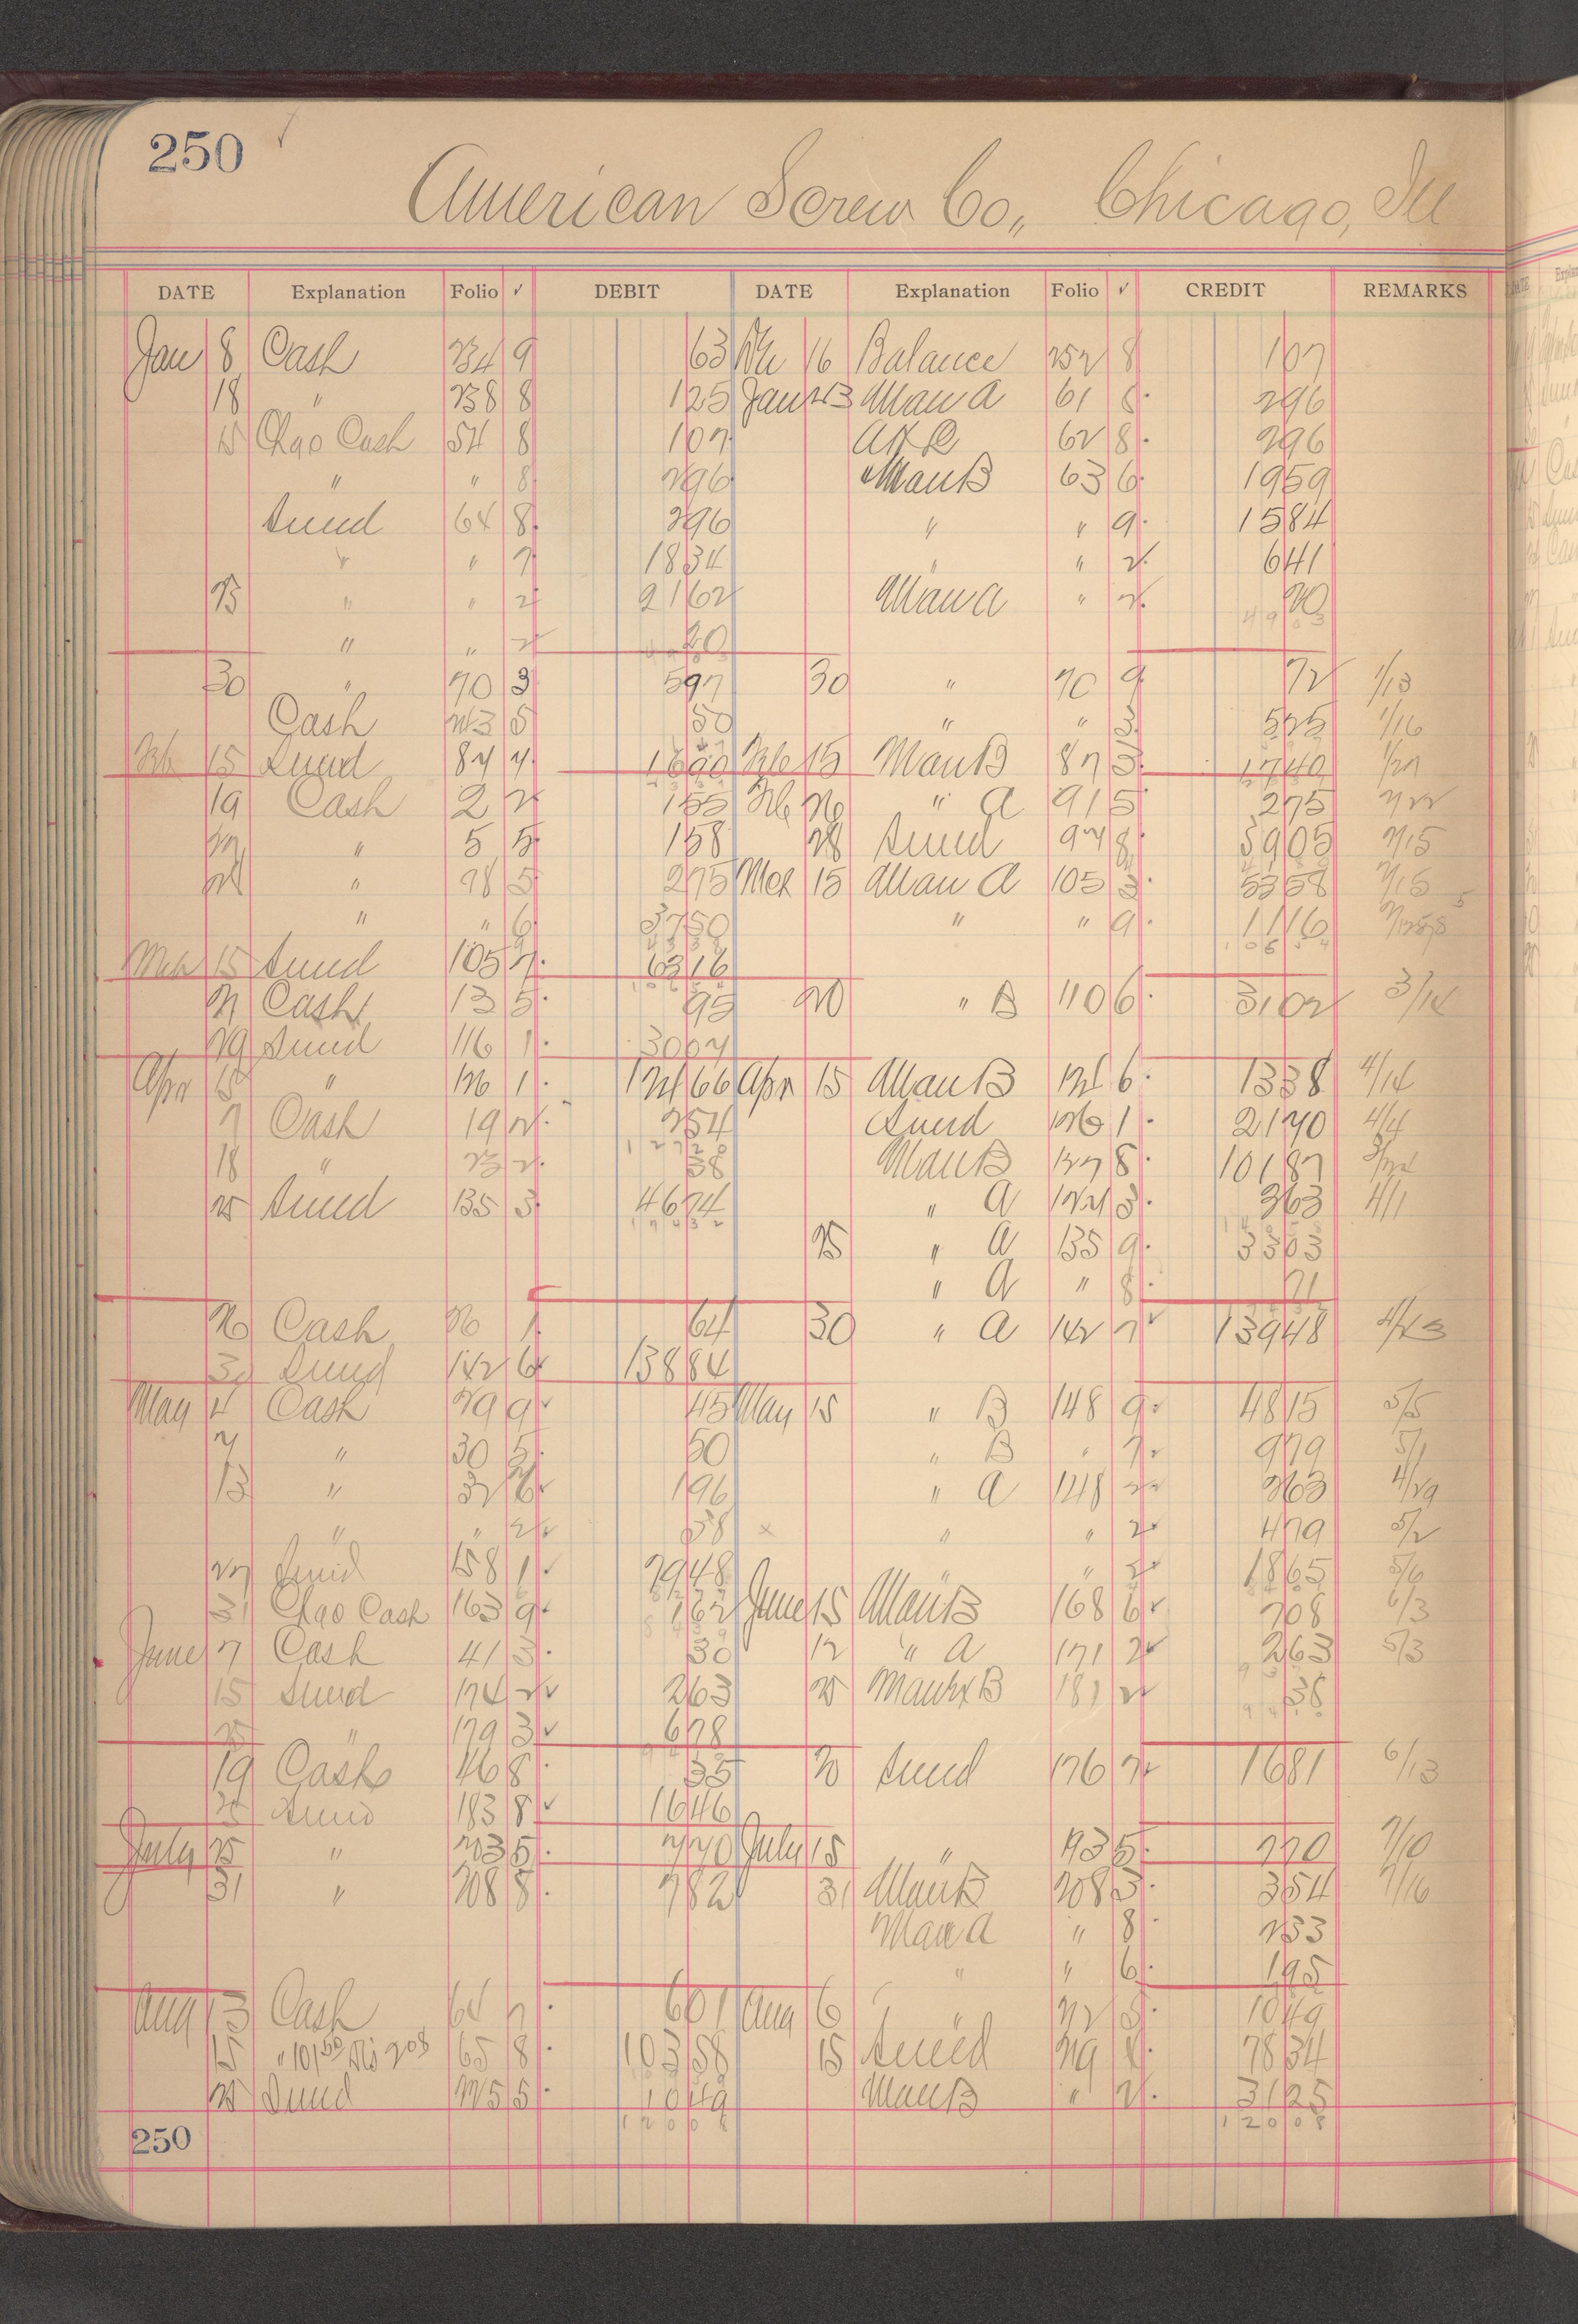 250
American Screw Co., Chicago, Ill
DATE Explanation Folio ✓ DEBIT DATE Explanation Folio ✓ CREDIT REMARKS
Jan 8 Cash 234 9 63 16 Balance 252 8 107
18 " 238 8 125 Jan 23 Man A 61 8 296
15 Chgo Cash 54 8 107 62 8 296
" " 8 296 Man B 63 6 1959
Sund 64 8 296 " " 9 1584
" " 7 1834 " " 2 641
25 " " 2 2162 Man A " 2 20
" " 2 20
30 " 70 3 597 30 " 70 9 72 1/13
Cash 243 5 50 " " 3 525 1/16
Feb 15 Sund 87 7 1690 Feb 15 Man B 87 3 1740 1/27
19 Cash 2 2 155 Feb 26 " A 91 5 275 2/22
" 5 5 158 28 Sund 97 8 3905 2/15
" 98 5 275 Mch 15 Man A 105 3 5358 2/15
" " 6 3750 " " 9 1116
Mch 15 Sund 105 7 6316
21 Cash 13 5 95 20 " B 110 6 3102 3/14
29 Sund 116 1 3007
Apr 15 " 126 1 12466 Apr 15 Man B 124 6 1338 4/14
7 Cash 19 2 254 Sund 126 1 2170 4/4
18 " 23 2 38 Man B 127 8 10187
25 Sund 135 3 4674 " A 127 3 363 4/1
25 " A 135 9 3303
" A " 8 71
26 Cash 26 1 64 30 " A 142 7 13948 4/23
30 Sund 142 6 13884
May 4 Cash 29 9 45 May 15 " B 148 9 4815 5/5
7 " 30 5 50 " B " 7 979 5/1
13 " 32 6 196 " A 148 2 263 4/29
" " 2 38 x " " 2 479 5/2
27 Sund 158 1 7948 " 2 1865 5/6
31 Chgo Cash 163 9 162 June 15 Man B 168 6 708 6/3
June 7 Cash 41 3 30 12 " A 171 2 263 5/3
15 Sund 174 2 263 25 B 181 2 38
25 " 179 3 678
19 Cash 46 8 35 20 Sund 176 7 1681 6/13
25 Sund 183 8 1646
July 25 " 203 5 770 July 15 " 193 5 770 7/10
31 " 208 8 782 31 Man B 208 3 354 7/16
Man A " 8 233
" " 6 195
Aug 13 Cash 64 7 601 Aug 6 " 212 5 1049
15 65 8 10358 15 Sund 219 8 7834
25 Sund 225 5 1049 Man B " 2 3125
12008 12008
250